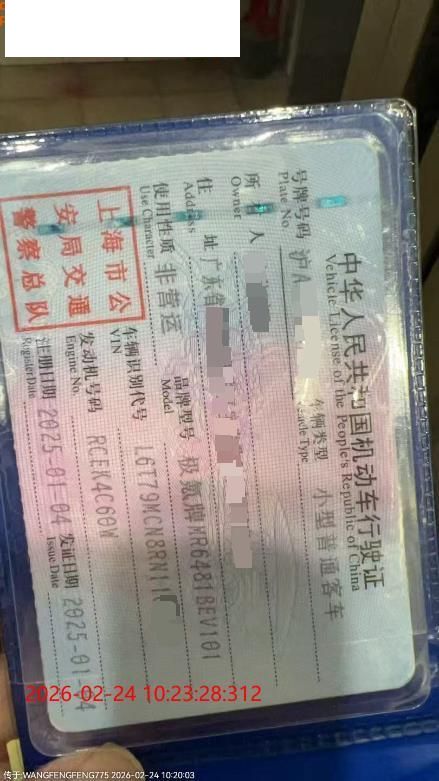 中华人民共和国机动车行驶证
Vehicle License of the People's Republic of China
号牌号码 沪A
Plate No.
车辆类型 小型普通客车
Vehicle Type
所有人
Owner
住址 广东省
Address
使用性质 非营运
Use Character
品牌型号 极氪牌MR6481BEV101
Model
车辆识别代号 L6T79MCN8RN11
VIN
发动机号码 RCEK4C60W
Engine No.
注册日期 2025-01-04
Register Date
发证日期 2025-01-04
Issue Date
上海市公
安局交通
警察总队
2026-02-24 10:23:28:312
传于:WANGFENGFENG775 2026-02-24 10:20:03